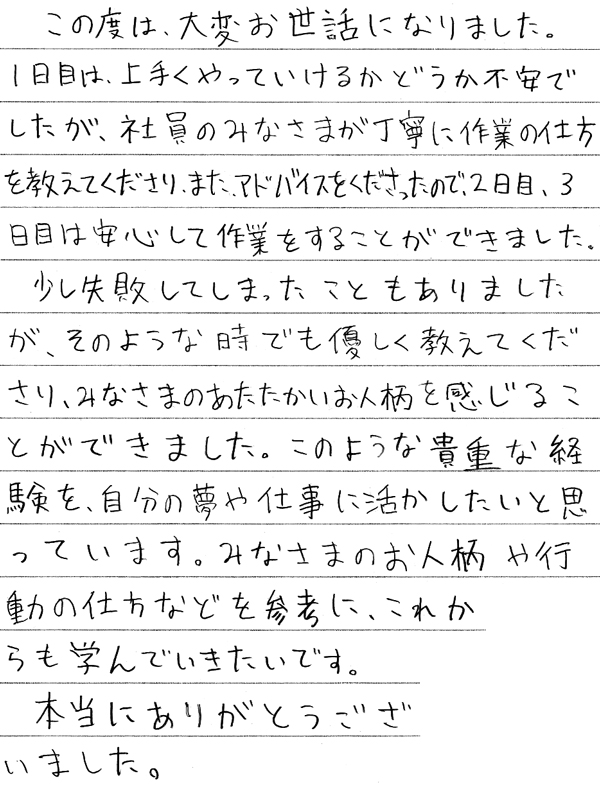 この度は、大変お世話になりました。
1日目は、上手くやっていけるかどうか不安で
したが、社員のみなさまが丁寧に作業の仕方
を教えてくださり、また、アドバイスをくださったので、2日目、3
日目は安心して作業をすることができました。
少し失敗してしまったこともありました
が、そのような時でも優しく教えてくだ
さり、みなさまのあたたかいお人柄を感じるこ
とができました。このような貴重な経
験を、自分の夢や仕事に活かしたいと思
っています。みなさまのお人柄や行
動の仕方などを参考に、これか
らも学んでいきたいです。
本当にありがとうござ
いました。